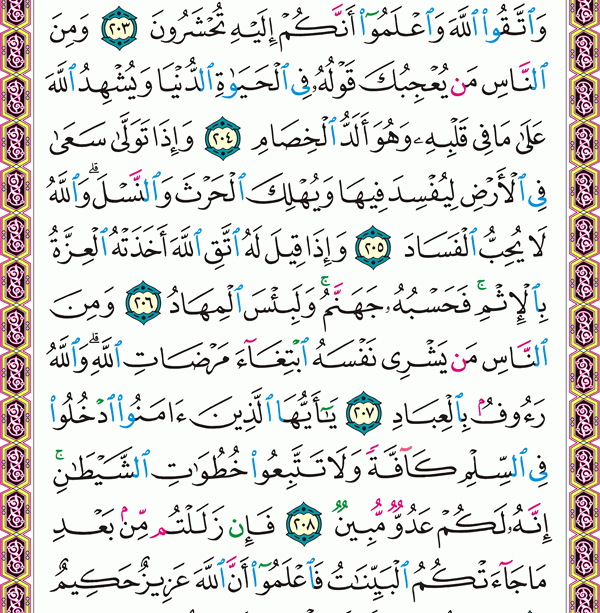 وَٱتَّقُوا۟ ٱللَّهَ وَٱعْلَمُوٓا۟ أَنَّكُمْ إِلَيْهِ تُحْشَرُونَ ٢٠٣ وَمِنَ
ٱلنَّاسِ مَن يُعْجِبُكَ قَوْلُهُۥ فِى ٱلْحَيَوٰةِ ٱلدُّنْيَا وَيُشْهِدُ ٱللَّهَ
عَلَىٰ مَا فِى قَلْبِهِۦ وَهُوَ أَلَدُّ ٱلْخِصَامِ ٢٠٤ وَإِذَا تَوَلَّىٰ سَعَىٰ
فِى ٱلْأَرْضِ لِيُفْسِدَ فِيهَا وَيُهْلِكَ ٱلْحَرْثَ وَٱلنَّسْلَ ۗ وَٱللَّهُ
لَا يُحِبُّ ٱلْفَسَادَ ٢٠٥ وَإِذَا قِيلَ لَهُ ٱتَّقِ ٱللَّهَ أَخَذَتْهُ ٱلْعِزَّةُ
بِٱلْإِثْمِ ۚ فَحَسْبُهُۥ جَهَنَّمُ ۚ وَلَبِئْسَ ٱلْمِهَادُ ٢٠٦ وَمِنَ
ٱلنَّاسِ مَن يَشْرِى نَفْسَهُ ٱبْتِغَآءَ مَرْضَاتِ ٱللَّهِ ۗ وَٱللَّهُ
رَءُوفٌۢ بِٱلْعِبَادِ ٢٠٧ يَـٰٓأَيُّهَا ٱلَّذِينَ ءَامَنُوا۟ ٱدْخُلُوا۟
فِى ٱلسِّلْمِ كَآفَّةً وَلَا تَتَّبِعُوا۟ خُطُوَٰتِ ٱلشَّيْطَـٰنِ ۚ
إِنَّهُۥ لَكُمْ عَدُوٌّ مُّبِينٌ ٢٠٨ فَإِن زَلَلْتُم مِّنۢ بَعْدِ
مَا جَآءَتْكُمُ ٱلْبَيِّنَـٰتُ فَٱعْلَمُوٓا۟ أَنَّ ٱللَّهَ عَزِيزٌ حَكِيمٌ